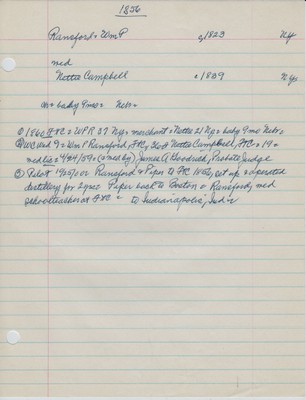 1856
Ransford = Wm P c 1823 NY
md
Nettie Campbell c 1839 NY
ch = baby 9mo = Neb =
① 1860 = WPR 37 NY = merchant = Nettie 21 NY = baby 9mo Neb =
② Wm P Ransford, = Nettie Campbell, = 19 =
4/24/59 = James A Goodrich, Probate Judge
③ Pilot 1/25/ Ransford & Piper to 1856, set up & operated
distillery for 2 yrs Piper back to Boston = Ransford, md
schoolteacher at = to Indianapolis, Ind =